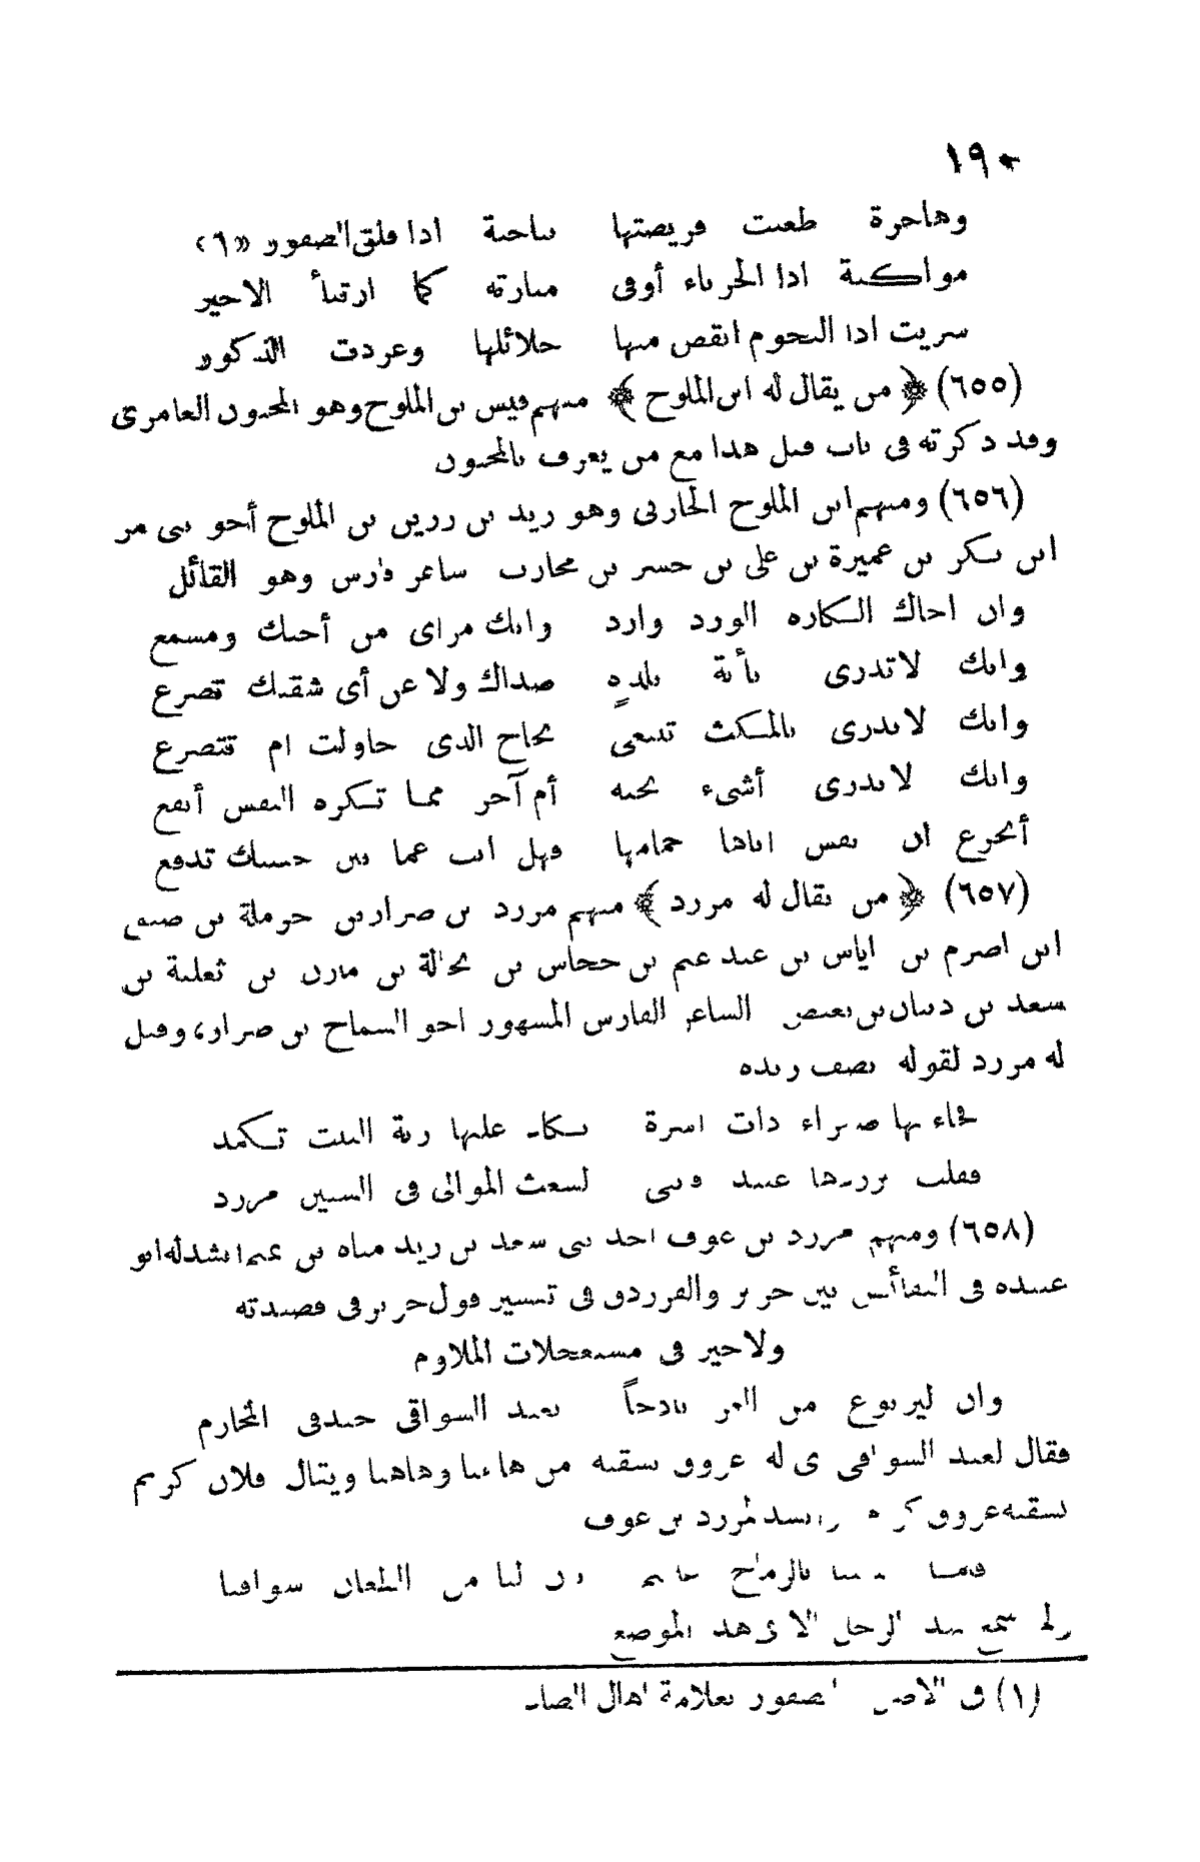 ١٩٠
وهاجرة طعنت فريصتها بناجية اذا قلق الضفور «٦»
مواكبة اذا الحرباء أوفى منارته كما ارتبأ الاجير
سريت اذا النجوم انقض منها حلائلها وعردت الذكور
(٦٥٥) ﴿ من يقال له ابن الملوح ﴾ منهم قيس بن الملوح وهو المجنون العامرى
وقد ذكرته فى باب قبل هذا مع من يعرف بالمجنون
(٦٥٦) ومنهم ابن الملوح الحارثى وهو زيد بن رزين بن الملوح أخو بنى مر
ابن بكر بن عميرة بن على بن جسر بن محارب شاعر فارس وهو القائل
وان اخاك الكاره الورد وارد وانك مرأى من أخيك ومسمع
وانك لاتدرى بأية بلدةٍ صداك ولا عن أى شقيك تصرع
وانك لاتدرى بالمكث تبتغى نجاح الذى حاولت ام تتصرع
وانك لاتدرى أشىء تحبه أم آخر مما تكره النفس أنفع
أتجزع ان نفس اتاها حمامها فهل انت عما بين جنبيك تدفع
(٦٥٧) ﴿ من يقال له مزرد ﴾ منهم مزرد بن ضرار بن حرملة بن صيفى
ابن اصرم بن اياس بن عبد غنم بن جحاش بن بجالة بن مازن بن ثعلبة بن
سعد بن ذبيان بن بغيض الشاعر الفارس المشهور اخو الشماخ بن ضرار، وقيل
له مزرد لقوله يصف زبدة
فجاء بها صفراء ذات اسرة تكاد عليها ربة البيت تكمد
فقلت تزردها عبيد فانى لشعث الموالى فى السنين مزرد
(٦٥٨) ومنهم مزرد بن عوف احد بنى سعد بن زيد مناة بن تميم انشد له ابو
عبيدة فى النقائض بين جرير والفرزدق فى تفسير قول جرير فى قصيدته
ولاخير فى مستعجلات الملاوم
وان ليربوع من العز باذخاً بعيد السواقى خندفى المخارم
فقال لعبد السواقى له عروق تسقيه من هاهنا وهاهنا ويقال فلان كريم
تسقيه عروق وانشد لمزرد بن عوف
بالرماح لنا من الطعان سواقيا
ولم الرجل الا فى هذ الموضع
(١) فى الاصل الضفور بعلامة اهمال الضاد